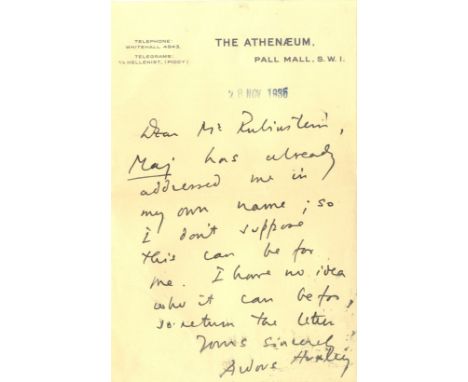 TELEPHONE
WHITEHALL 4843.
TELEGRAMS:
℅ HELLENIST, (PICCY)
THE ATHENÆUM,
PALL MALL, S.W.1.
28 NOV 1936
Dear Mr Rubinstein,
Maj has already
addressed me in
my own name; so
I don't suppose
this can be for
me. I have no idea
who it can be for,
so return the letter
Yours sincerely
Aldous Huxley